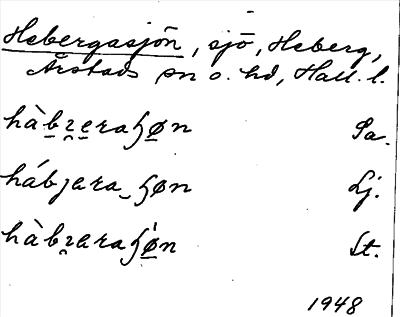 Hebergasjön, sjö, Heberg,
Årstads sn o. hd, Hall. l.
hàb̲ɿ̯e̲raɧø̲n Sa.
hábȷara‿ɧøn Lj.
hàbɿ̯araɧǿ̲n St.
1948